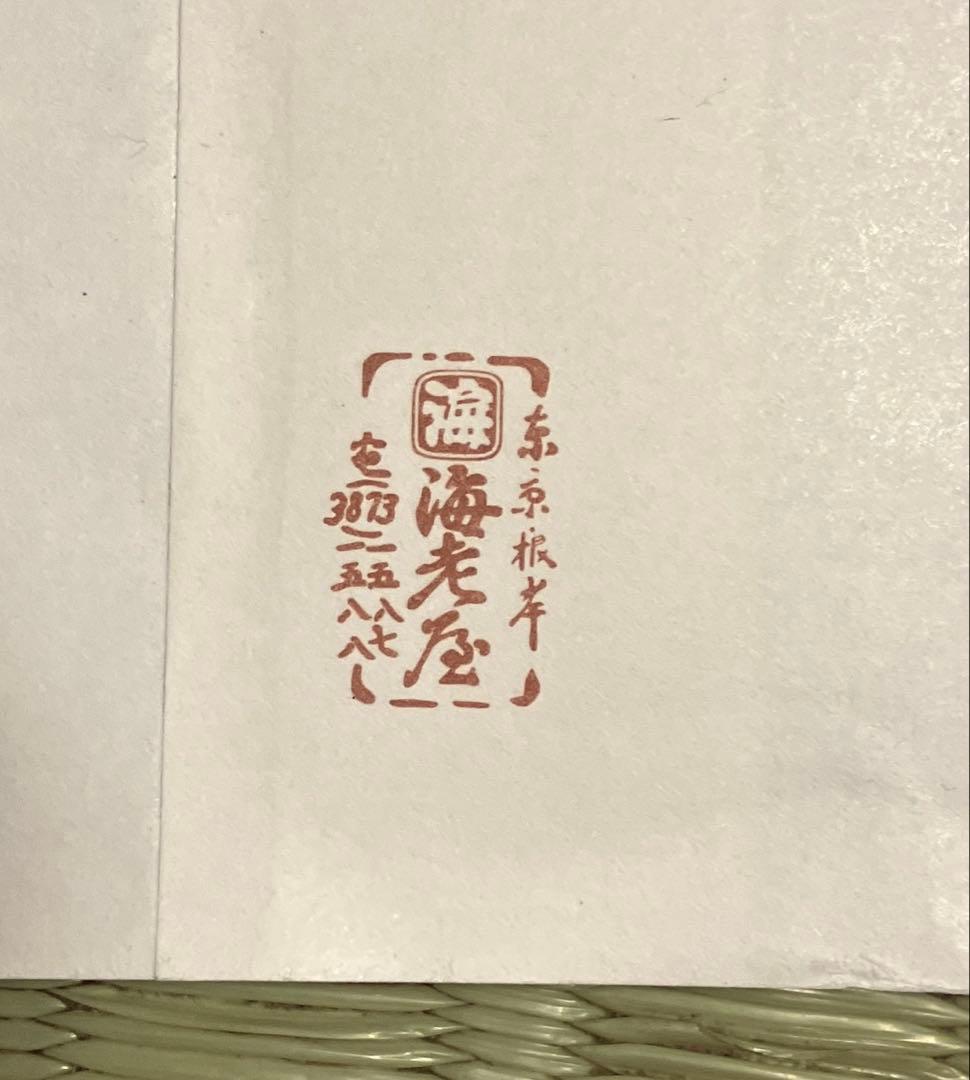 東京根岸
海
海老屋
電
3873
一五八七
一五八八